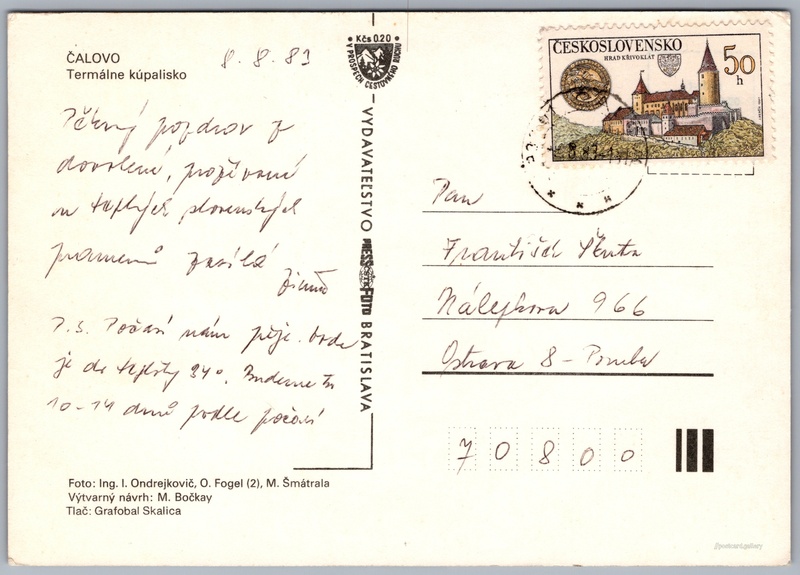 ČALOVO
Termálne kúpalisko
8. 8. 83
Pěkný pozdrav z
dovolené, prožívané
na teplých slovenských
pramenů zasílá
P.S. Počasí nám přeje. Voda
je do teploty 34°. Budeme tu
10-14 dnů podle počasí
Foto: Ing. I. Ondrejkovič, O. Fogel (2), M. Šmátrala
Výtvarný návrh: M. Bočkay
Tlač: Grafobal Skalica
Kčs 0.20
V PROSPECH CESTOVNÉHO RUCHU
VYDAVATEĽSTVO PRESSFOTO BRATISLAVA
ČESKOSLOVENSKO
HRAD KŘIVOKLÁT
50 h
Pan
František
Nálepkova 966
Ostrava 8 - Poruba
70800
postcard.gallery